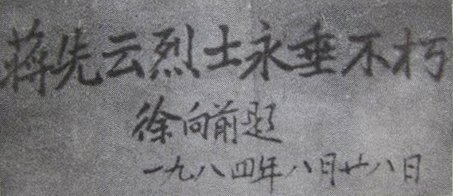 蒋先云烈士永垂不朽
徐向前题
一九八四年八月廿八日